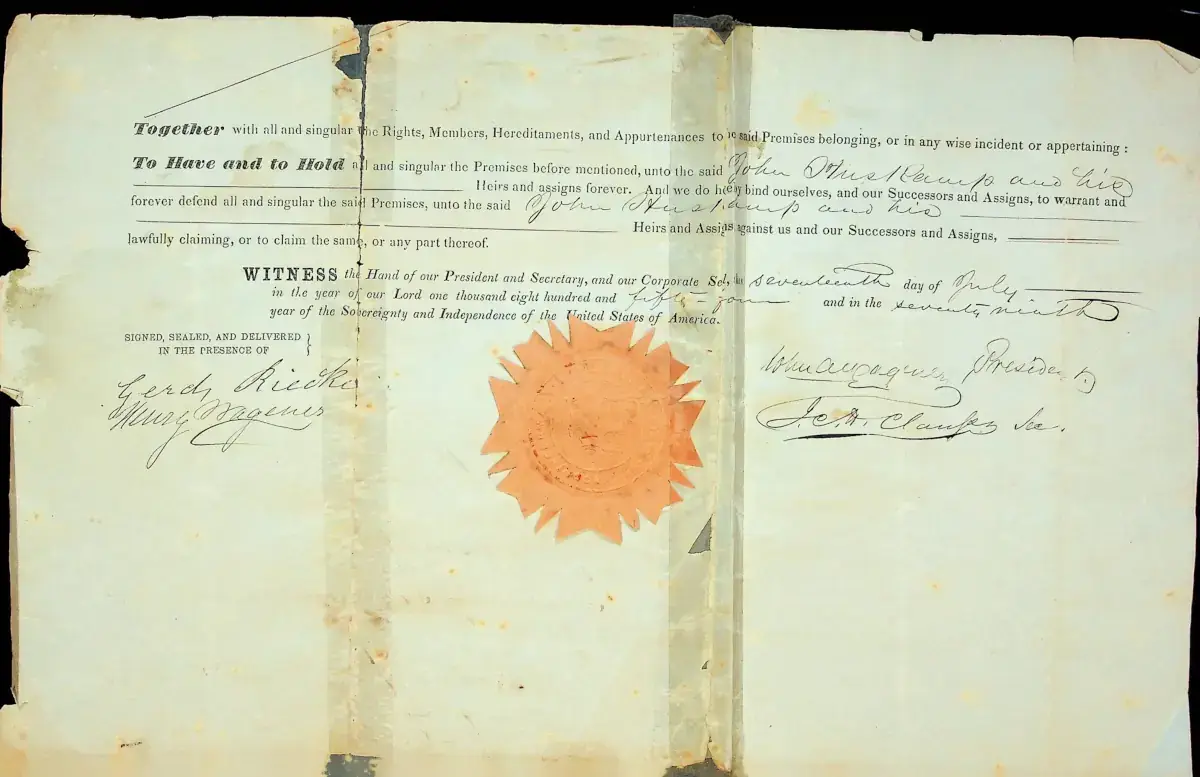 Together with all and singular the Rights, Members, Hereditaments, and Appurtenances to the said Premises belonging, or in any wise incident or appertaining :
To Have and to Hold all and singular the Premises before mentioned, unto the said John Huskamp and his
Heirs and assigns forever. And we do hereby bind ourselves, and our Successors and Assigns, to warrant and
forever defend all and singular the said Premises, unto the said John Huskamp and his
Heirs and Assigns against us and our Successors and Assigns,
lawfully claiming, or to claim the same, or any part thereof.
WITNESS the Hand of our President and Secretary, and our Corporate Seal, this seventeenth day of July
in the year of our Lord one thousand eight hundred and fifty-four and in the seventy ninth
year of the Sovereignty and Independence of the United States of America.
SIGNED, SEALED, AND DELIVERED
IN THE PRESENCE OF
Gerd Riecke
Henry Wagener
John A Wagener President
J. C. H. Claussen Sec.